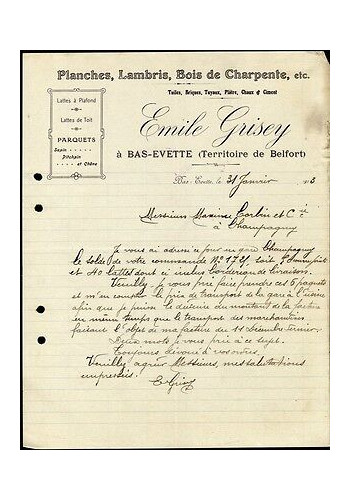 Planches, Lambris, Bois de Charpente, etc.
Tuiles, Briques, Tuyaux, Plâtre, Chaux & Ciment
Lattes à Plafond
Lattes de Toit
PARQUETS
Sapin
Pitchpin
et Chêne
Emile Grisey
à BAS-EVETTE (Territoire de Belfort)
Bas-Evette, le 31 Janvier 19 3
Messieurs Maxime Corbin et Cie
à Champagney
Je vous ai adressé ce jour en gare Champagney
le solde de votre commande No 1725, soit
et 40 lattes dont ci inclus bordereau de livraison.
Veuillez je vous prie faire prendre ces 6 paquets
et m'en le prix de transport de la gare à l'usine
afin que je puisse le déduire du montant de la facture
en même temps que le transport des marchandises
faisant l'objet de ma facture du 11 Décembre dernier.
Deux mots je vous prie à ce sujet.
Toujours dévoué à vos ordres,
Veuillez agréer Messieurs, mes salutations
empressées.
E Grisey